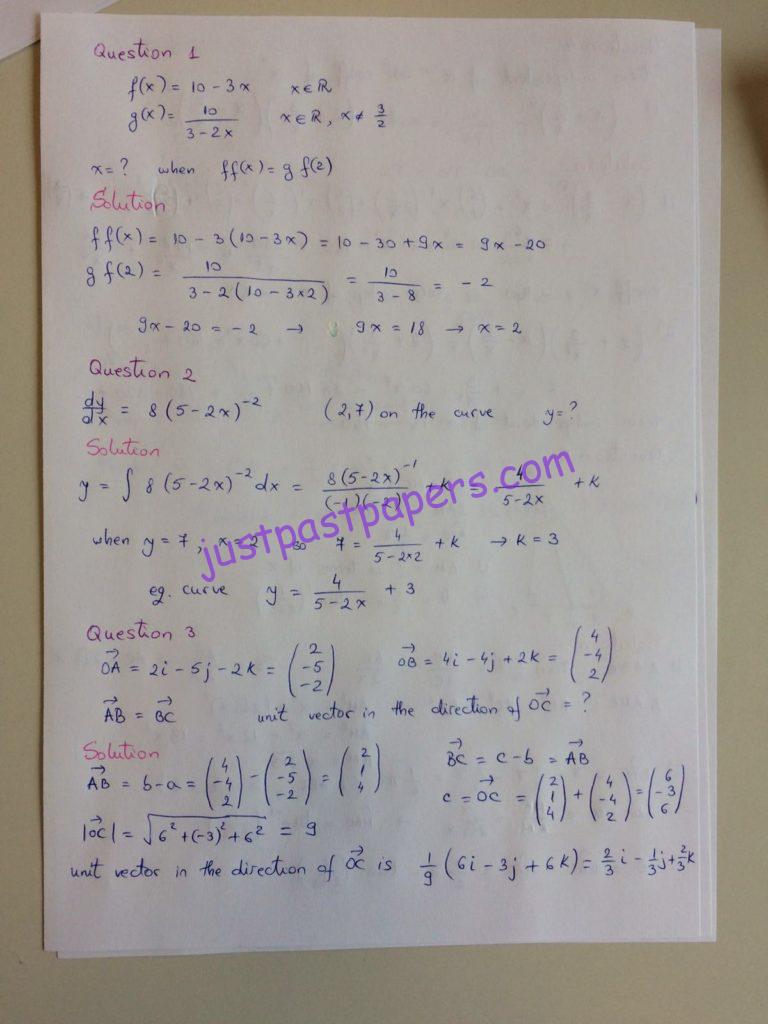 Question 1
f(x) = 10 - 3x x ∈ ℝ
g(x) = 10/(3 - 2x) x ∈ ℝ, x ≠ 3/2
x = ? when ff(x) = g f(2)
Solution
f f(x) = 10 - 3(10 - 3x) = 10 - 30 + 9x = 9x - 20
g f(2) = 10/(3 - 2(10 - 3×2)) = 10/(3 - 8) = - 2
9x - 20 = - 2 → 9x = 18 → x = 2
Question 2
dy/dx = 8(5 - 2x)^-2 (2,7) on the curve y = ?
Solution
y = ∫ 8(5 - 2x)^-2 dx = 8(5 - 2x)^-1/((-1)(-2)) + k 4/(5 - 2x) + k
when y = 7, x = 2 so 7 = 4/(5 - 2×2) + k → k = 3
eg. curve y = 4/(5 - 2x) + 3
justpastpapers.com
Question 3
→OA = 2i - 5j - 2k = (2 -5 -2) →OB = 4i - 4j + 2k = (4 -4 2)
→AB = →BC unit vector in the direction of →OC = ?
Solution
→AB = b - a = (4 -4 2) - (2 -5 -2) = (2 1 4)
→BC = c - b = →AB
c = →OC = (2 1 4) + (4 -4 2) = (6 -3 6)
|→OC| = √(6² + (-3)² + 6²) = 9
unit vector in the direction of →OC is 1/9 (6i - 3j + 6k) = 2/3 i - 1/3 j + 2/3 k